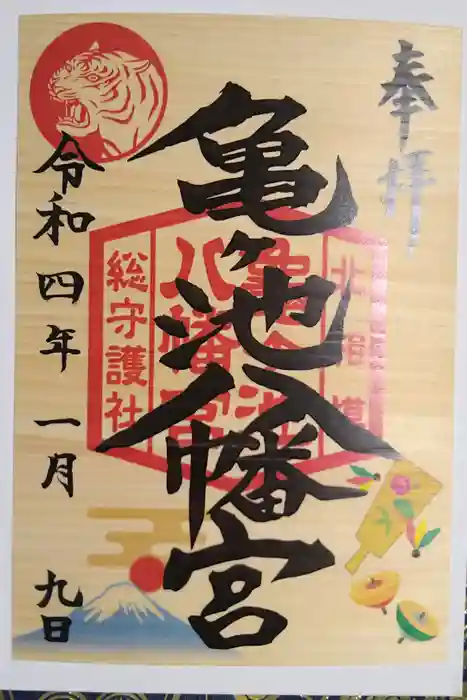 奉拝
亀ヶ池八幡宮
北相模
亀ヶ池
八幡宮
総守護社
令和四年 一月 九日